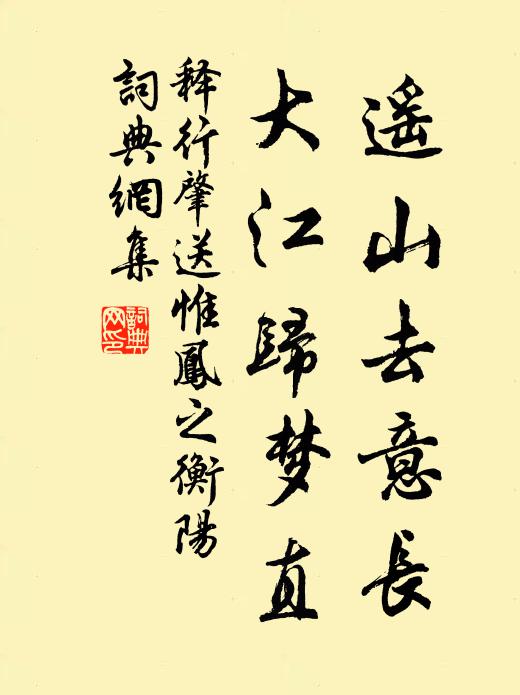 遥山去意長
大江歸梦直
释行肇送惟鳳之衡陽
詞典網集
詞典网印